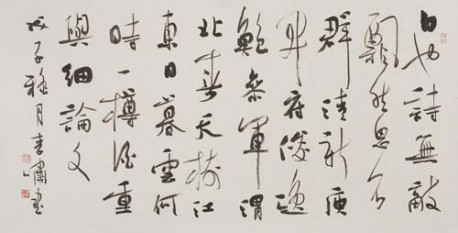 白也詩無敵
飄然思不
群清新庾
開府俊逸
鮑參軍渭
北春天樹江
東日暮雲何
時一樽酒重
與細論文
戊子秋月李嘯書